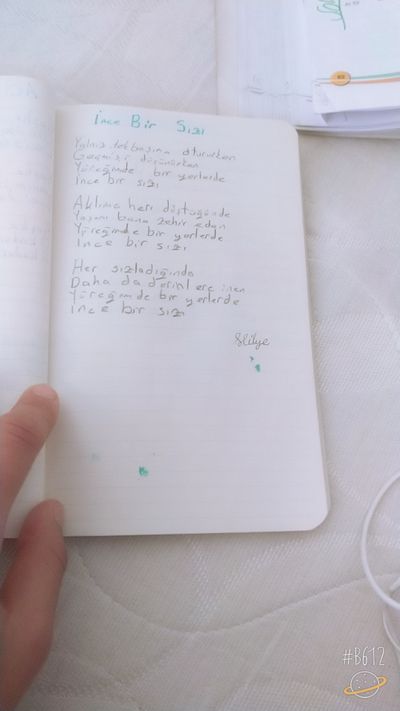 İnce Bir Sızı
Yalnız tek başına otururken
Geçmişi düşünürken
Yüreğimde bir yerlerde
İnce bir sızı
Aklıma her düştüğünde
Yaşamı bana zehir eden
Yüreğimde bir yerlerde
İnce bir sızı
Her sızladığında
Daha da derinlere inen
Yüreğimde bir yerlerde
İnce bir sızı
#B612